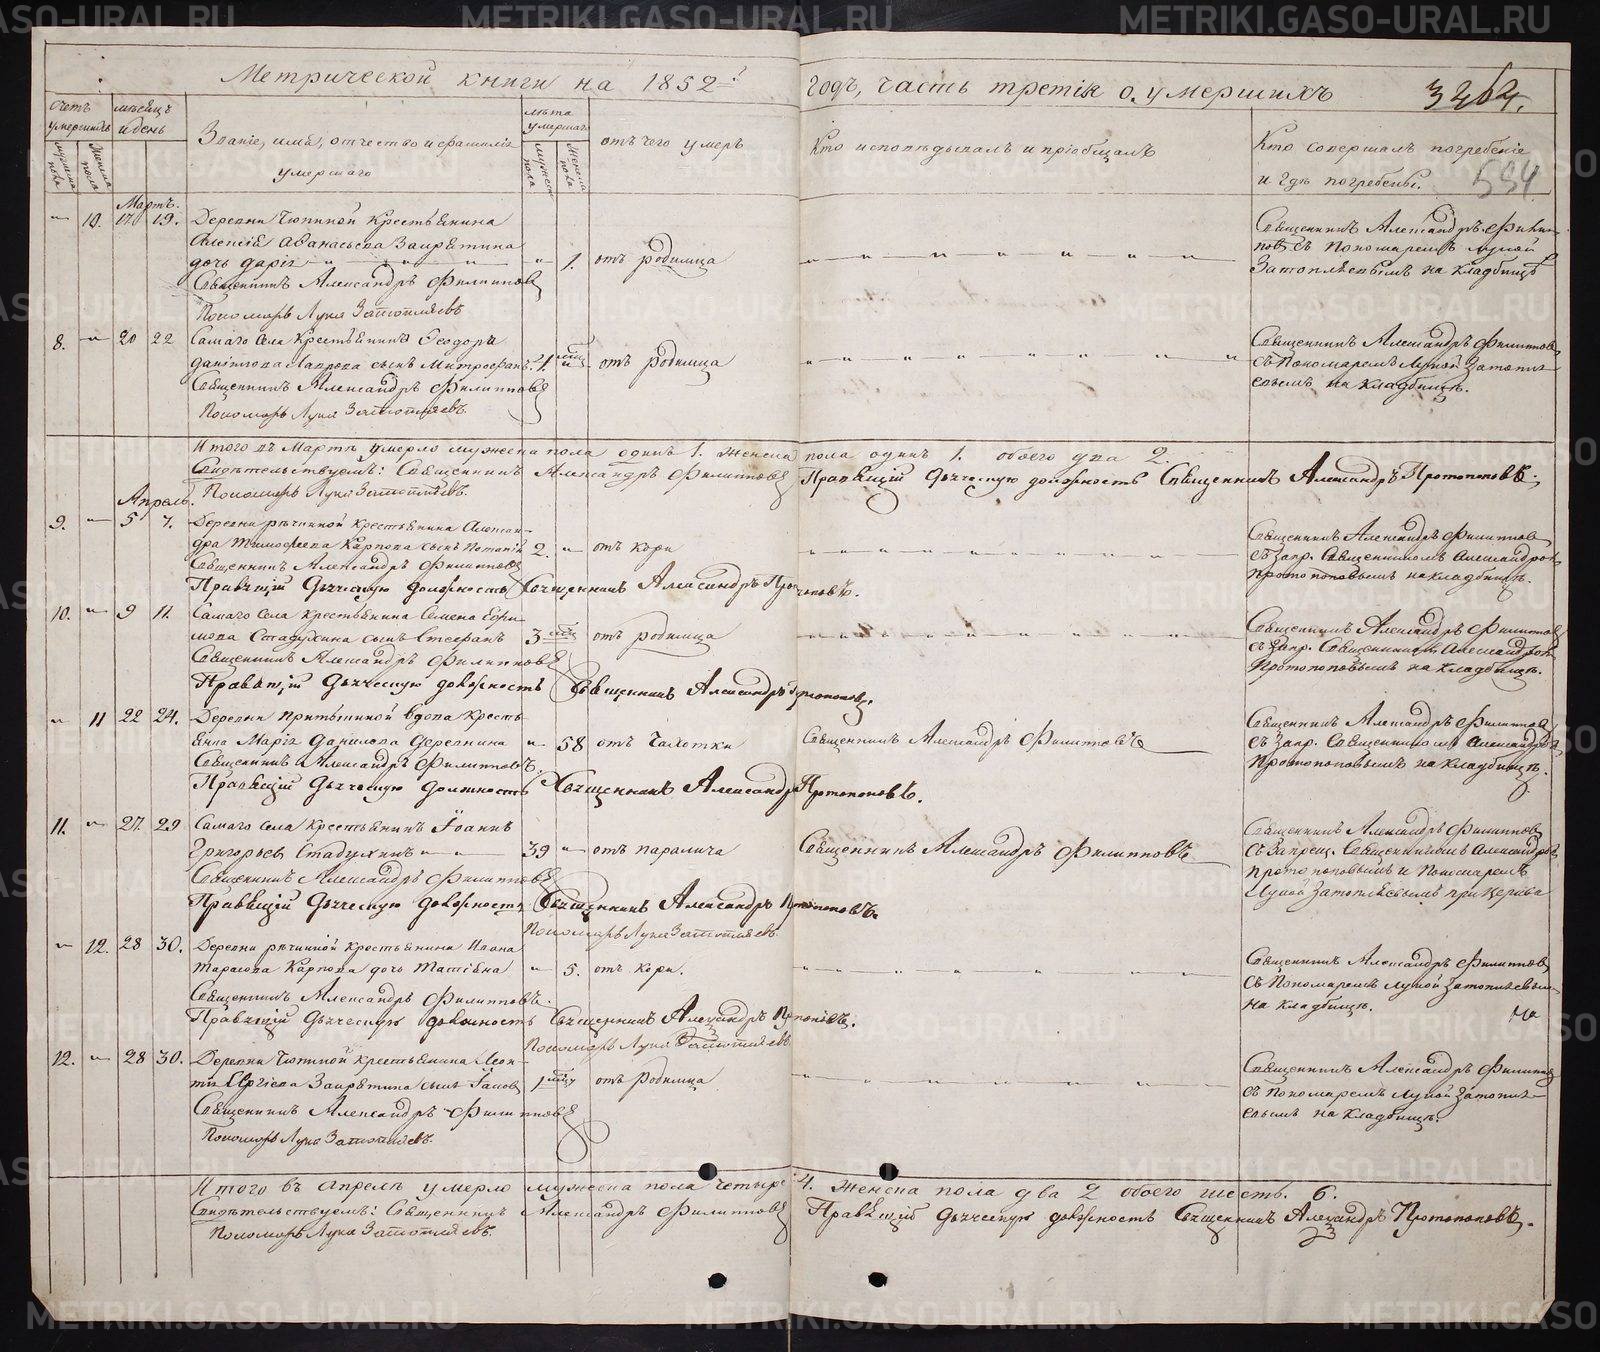 Метрической книги на 1852й годъ, часть третія о умершихъ
счетъ умершихъ
мужеска пола
женска пола
мѣсяцъ и день
Званіе, имя, отчество и фамилія умершаго
лѣта умершаго
мужеска пола
женска пола
отъ чего умеръ
Кто исповѣдывалъ и пріобщалъ
Кто совершалъ погребеніе и гдѣ погребены.
594
Мартъ.
10. 17. 19. Деревни Крестьянина
Алексія Аѳанасьева
дочь Дарія 1. отъ родимца
Священникъ Александръ Филипповъ
Пономарь Лука Затопляевъ
Священникъ Александръ Филип-
повъ съ Пономаремъ Лукой
Затопляевымъ на кладбищѣ
8. 20 22 Самаго Села Крестьянина Ѳеодора
Даніилова Лаврова сынъ Митрофанъ. 1. мц. отъ родимца
Священникъ Александръ Филипповъ
Пономарь Лука Затопляевъ.
Священникъ Александръ Филипповъ
съ Пономаремъ Лукой Затопля-
евымъ на кладбищѣ.
Итого въ Мартѣ умерло мужеска пола одинъ 1. женска пола одинъ 1. обоего два 2.
Свидѣтельствуемъ: Священникъ Александръ Филипповъ Правящій Дьяческую должность Священникъ Александръ Протопоповъ.
Пономарь Лука Затопляевъ.
Апрель.
9. 5 7. Деревни Рѣчкиной Крестьянина Алексан-
дра Тимофеева Карпова сынъ 2. отъ кори
Священникъ Александръ Филипповъ
Правящій Дьяческую должность Священникъ Александръ Протопоповъ.
Священникъ Александръ Филиппов
съ запр. Священникомъ Александромъ
Протопоповымъ на кладбищѣ.
10. 9 11. Самаго Села Крестьянина Семена Ефи-
мова Стадухина сынъ Стефанъ 3 мц. отъ родимца
Священникъ Александръ Филипповъ
Правящій Дьяческую должность Священникъ Александръ Протопоповъ.
Священникъ Александръ Филиппов
съ запр. Священникомъ Александромъ
Протопоповымъ на кладбищѣ.
11 22 24. Деревни вдова кресть-
янка Марія Данилова 58 отъ чахотки
Священникъ Александръ Филипповъ
Священникъ Александръ Филипповъ
Правящій Дьяческую должность Священникъ Александръ Протопоповъ.
Священникъ Александръ Филиппов
съ запр. Священникомъ Александромъ
Протопоповымъ на кладбищѣ.
11. 27. 29 Самаго Села Крестьянинъ Іоаннъ
Григорьевъ Стадухинъ 39 отъ паралича
Священникъ Александръ Филипповъ
Священникъ Александръ Филипповъ
Правящій Дьяческую должность Священникъ Александръ Протопоповъ.
Пономарь Лука Затопляевъ.
Священникъ Александръ Филиппов
съ запрещ. Священникомъ Александромъ
Протопоповымъ и Пономаремъ
Лукой Затопляевымъ при церкви
12. 28 30. Деревни Рѣчкиной Крестьянина Ивана
Тарасова Карпова дочь Татіана 5. отъ кори.
Священникъ Александръ Филипповъ.
Правящій Дьяческую должность Священникъ Александръ Протопоповъ.
Пономарь Лука Затопляевъ.
Священникъ Александръ Филиппов
съ Пономаремъ Лукой Затопляевым
на кладбищѣ.
12. 28 30. Деревни Крестьянина Леон-
тія сынъ Іаковъ 1 мцъ отъ родимца
Священникъ Александръ Филипповъ
Пономарь Лука Затопляевъ.
Священникъ Александръ Филиппов
съ Пономаремъ Лукой Затопля-
евымъ на кладбищѣ.
Итого въ Апрелѣ умерло мужеска пола четыре 4. женска пола два 2 обоего шесть. 6.
Свидѣтельствуемъ: Священникъ Александръ Филипповъ Правящій Дьяческую должность Священникъ Александръ Протопоповъ.
Пономарь Лука Затопляевъ.
METRIKI.GASO-URAL.RU